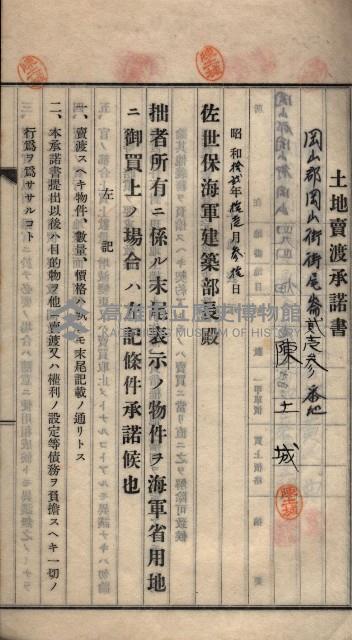 土地賣渡承諾書
岡山郡岡山街街尾崙貳壱参番地
陳土城
昭和拾貳年拾壱月参拾日
佐世保海軍建築部長殿
拙者所有ニ係ル末尾表示ノ物件ヲ海軍省用地
ニ御買上ノ場合ハ左記條件承諾候也
左記
一、賣渡スヘキ物件、數量、價格ハ末尾記載ノ通リトス
二、本承諾書提出以後ハ目的物ヲ他ニ賣渡又ハ權利ノ設定等債務ヲ負擔スヘキ一切ノ
行爲ヲ爲ササルコト
高雄市立歷史博物館
KAOHSIUNG MUSEUM OF HISTORY